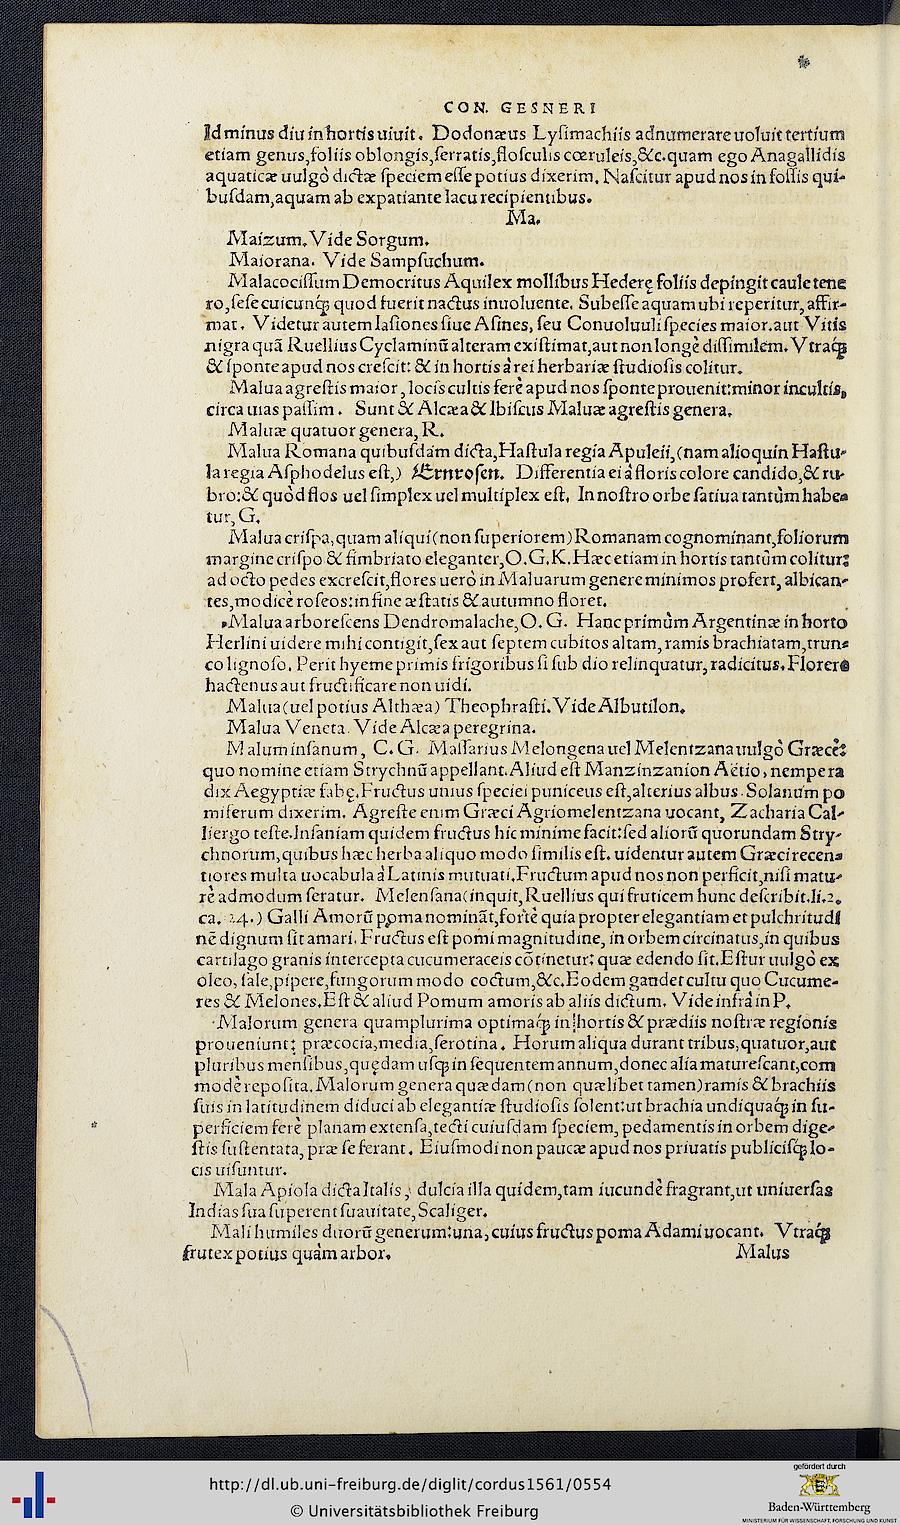 CON. GESNERI
Id minus diu in hortis uiuit. Dodonæus Lysimachiis adnumerare uoluit tertium
etiam genus, foliis oblongis, serratis, flosculis cœruleis, &c. quam ego Anagallidis
aquaticæ uulgò dictæ speciem esse potius dixerim. Nascitur apud nos in fossis qui-
busdam, aquam ab expatiante lacu recipientibus.
Ma.
Maizum. Vide Sorgum.
Maiorana. Vide Sampsuchum.
Malacocissum Democritus Aquilex mollibus Hederę foliis depingit caule tene
ro, sese cuicunq; quod fuerit nactus inuoluente. Subesse aquam ubi reperitur, affir-
mat. Videtur autem Iasiones siue Asines, seu Conuoluuli species maior. aut Vitis
nigra quā Ruellius Cyclaminū alteram existimat, aut non longè dissimilem. Vtraq;
& sponte apud nos crescit: & in hortis à rei herbariæ studiosis colitur.
Malua agrestis maior, locis cultis ferè apud nos sponte prouenit: minor incultis,
circa uias passim. Sunt & Alcæa & Ibiscus Maluæ agrestis genera.
Maluæ quatuor genera, R.
Malua Romana quibusdam dicta, Hastula regia Apuleii, (nam alioquin Hastu-
la regia Asphodelus est,) Ernrosen. Differentia ei à floris colore candido, & ru-
bro: & quòd flos uel simplex uel multiplex est. In nostro orbe satiua tantùm habe-
tur, G.
Malua crispa, quam aliqui (non superiorem) Romanam cognominant, foliorum
margine crispo & fimbriato eleganter, O. G. K. Hæc etiam in hortis tantùm colitur:
ad octo pedes excrescit, flores uerò in Maluarum genere minimos profert, albican-
tes, modicè roseos: in fine æstatis & autumno floret.
Malua arborescens Dendromalache, O. G. Hanc primùm Argentinæ in horto
Herlini uidere mihi contigit, sex aut septem cubitos altam, ramis brachiatam, trun-
co lignoso. Perit hyeme primis frigoribus si sub dio relinquatur, radicitus. Florere
hactenus aut fructificare non uidi.
Malua (uel potius Althæa) Theophrasti. Vide Albutilon.
Malua Veneta. Vide Alcæa peregrina.
Malum insanum, C. G. Massarius Melongena uel Melentzana uulgò Græcè:
quo nomine etiam Strychnū appellant. Aliud est Manzinzanion Aëtio, nempe ra
dix Aegyptiæ fabę. Fructus unius speciei puniceus est, alterius albus. Solanum po
miferum dixerim. Agreste enim Græci Agriomelentzana uocant, Zacharia Cal-
liergo teste. Insaniam quidem fructus hic minime facit: sed aliorū quorundam Stry-
chnorum, quibus hæc herba aliquo modo similis est. uidentur autem Græci recen-
tiores multa uocabula à Latinis mutuati. Fructum apud nos non perficit, nisi matu-
rè admodum seratur. Melensana (inquit, Ruellius qui fruticem hunc describit. li. 2.
ca. 24.) Galli Amorū poma nomināt, fortè quia propter elegantiam et pulchritudi
nē dignum sit amari. Fructus est pomi magnitudine, in orbem circinatus, in quibus
cartilago granis intercepta cucumeraceis cōtinetur: quæ edendo sit. Estur uulgò ex
oleo, sale, pipere, fungorum modo coctum, &c. Eodem gaudet cultu quo Cucume-
res & Melones. Est & aliud Pomum amoris ab aliis dictum. Vide infrà in P.
Malorum genera quamplurima optimaq; in hortis & prædiis nostræ regionis
proueniunt: præcocia, media, serotina. Horum aliqua durant tribus, quatuor, aut
pluribus mensibus, quędam usq; in sequentem annum, donec alia maturescant, com
modè reposita. Malorum genera quædam (non quælibet tamen) ramis & brachiis
suis in latitudinem diduci ab elegantiæ studiosis solent: ut brachia undiquaq; in su-
perficiem ferè planam extensa, tecti cuiusdam speciem, pedamentis in orbem dige-
stis sustentata, præ se ferant. Eiusmodi non paucæ apud nos priuatis publicisq; lo-
cis uisuntur.
Mala Apiola dicta Italis, dulcia illa quidem, tam iucundè fragrant, ut uniuersas
Indias sua superent suauitate, Scaliger.
Mali humiles duorū generum: una, cuius fructus poma Adami uocant. Vtraq;
frutex potius quàm arbor.
Malus
http://dl.ub.uni-freiburg.de/diglit/cordus1561/0554
© Universitätsbibliothek Freiburg
gefördert durch
Baden-Württemberg
MINISTERIUM FÜR WISSENSCHAFT, FORSCHUNG UND KUNST